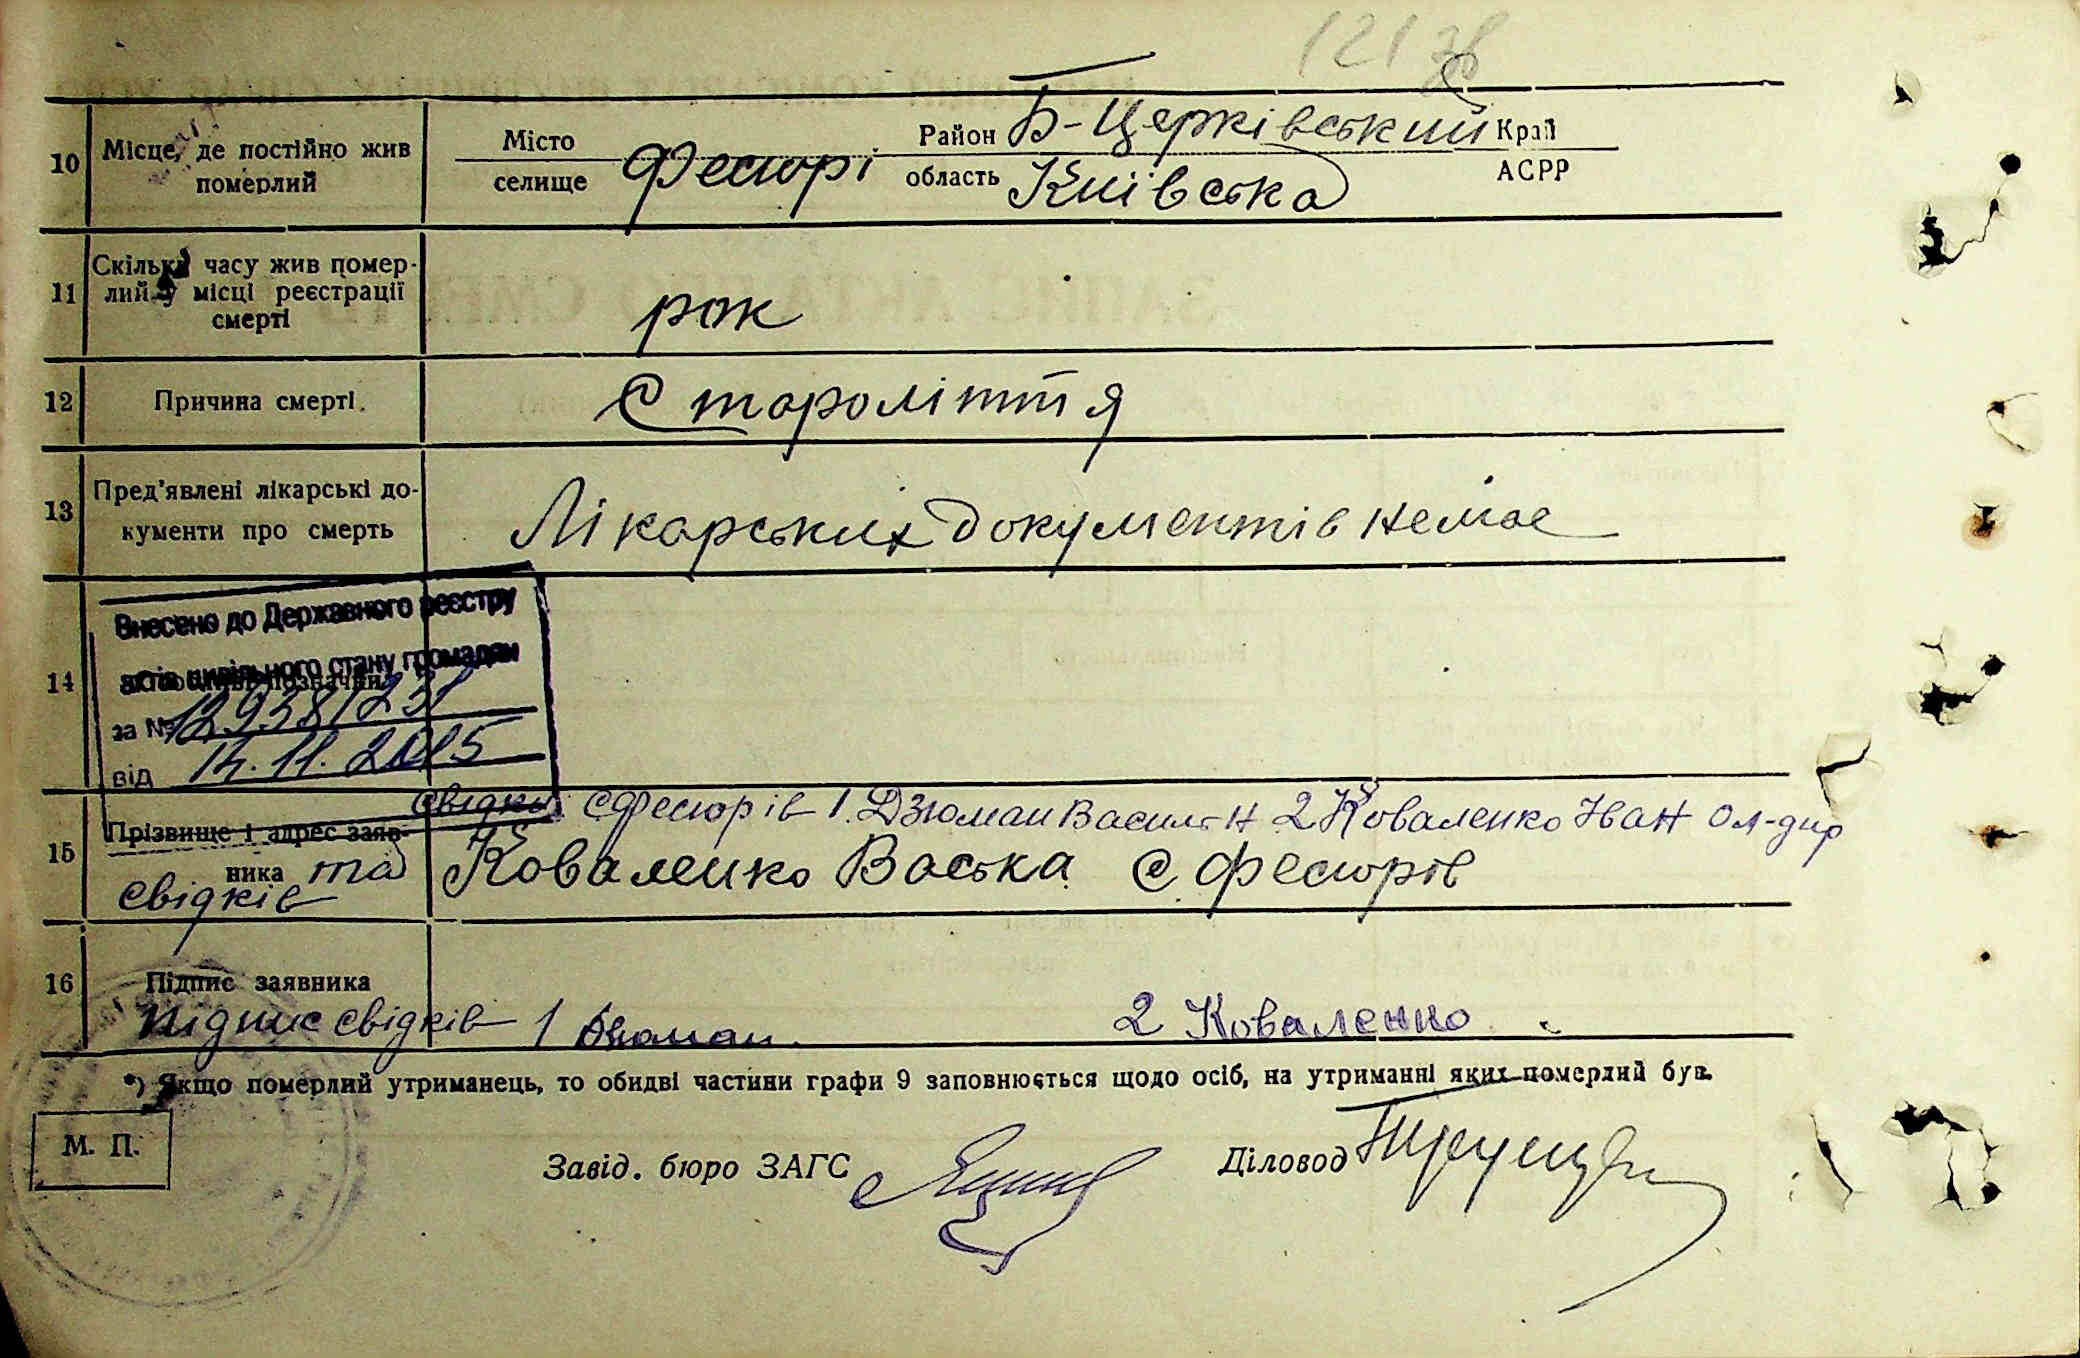 121 зв
10 Місце, де постійно жив померлий
Місто
селище Фесюрі
Район Б-Церківський Край
область Київська АСРР
11 Скільки часу жив помер-
лий у місці реєстрації
смерті
рок
12 Причина смерті. Староліття
13 Пред'явлені лікарські до-
кументи про смерть
Лікарських документів немає
Внесено до Державного реєстру
актів цивільного стану громадян
14
за № 12938123
від 14.11.2015
свідки с Фесюрів 1. Дзюман Василь Н 2 Коваленко Іван Ол-дир
15 Прізвище і адрес заяв-
ника та
свідків
Коваленко Васька с. Фесюрів
16 Підпис заявника
підпис свідків 1 Дзюман. 2 Коваленко
*) Якщо померлий утриманець, то обидві частини графи 9 заповнюється щодо осіб, на утриманні яких померлий був.
М. П.
Завід. бюро ЗАГС
Діловод